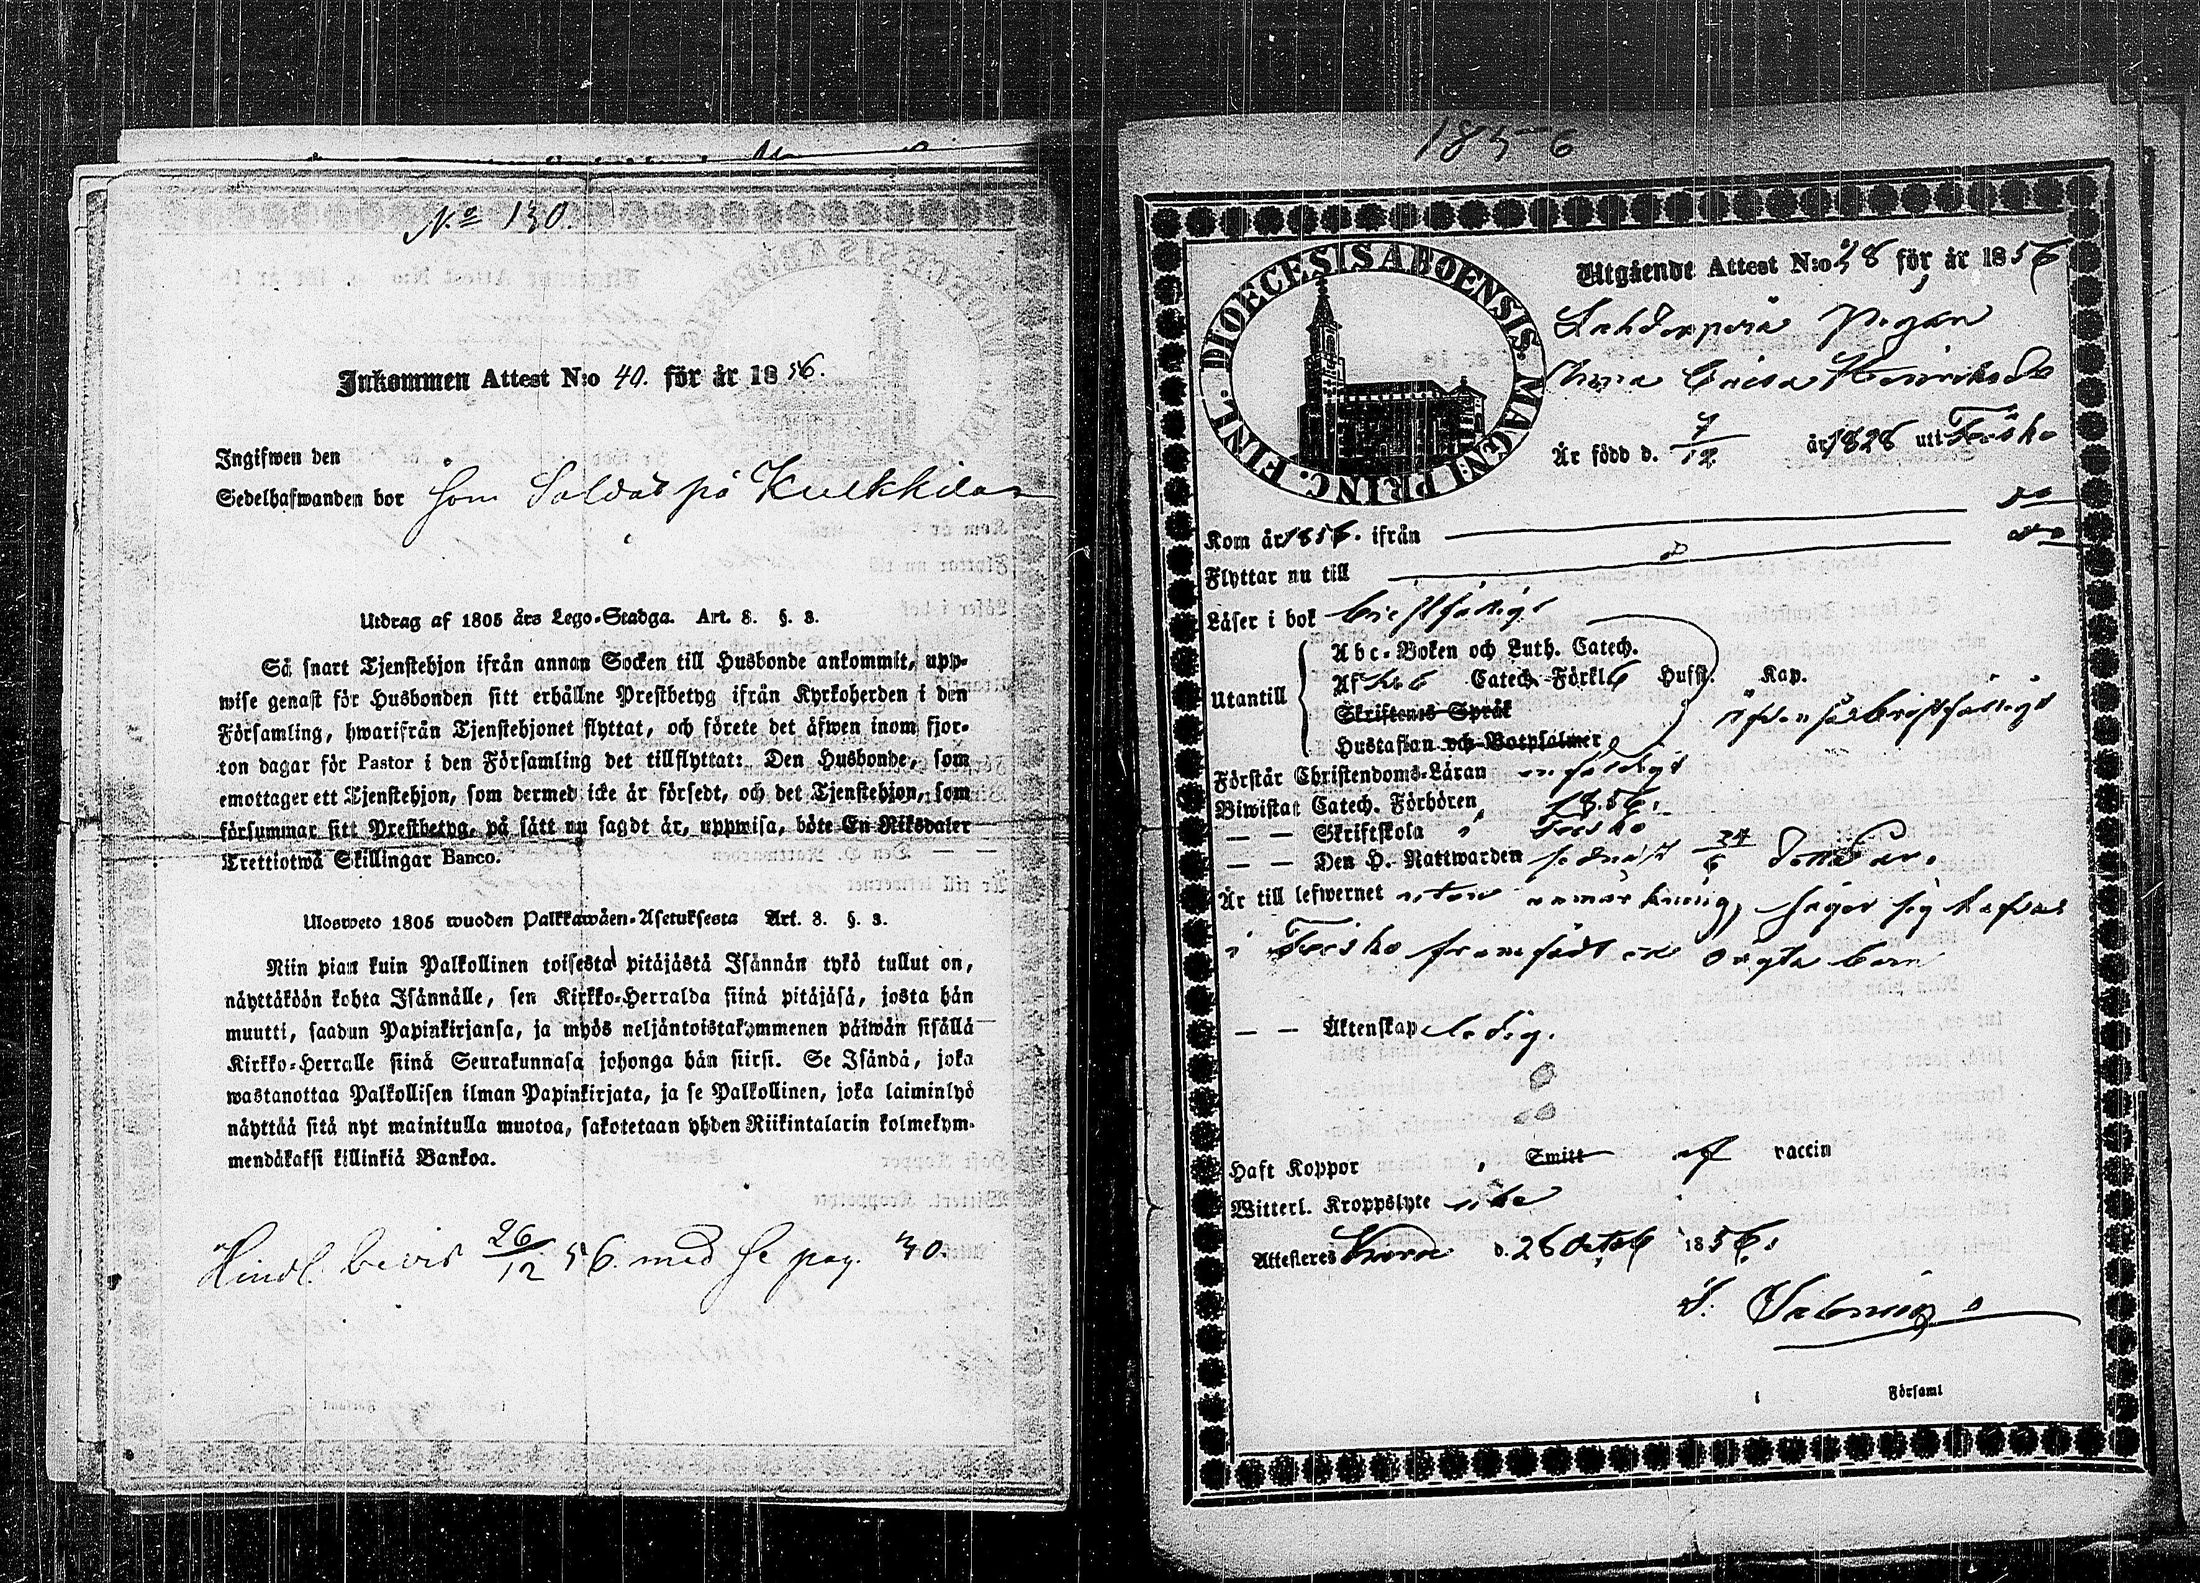 No 130.
Inkommen Attest N:o 40. för år 1856.
Ingifwen den
Sedelhafwanden bor som Soldat på Kulkkila
Utdrag af 1805 års Lego-Stadga. Art. 8. §. 3.
Så snart Tjenstehjon ifrån annan Socken till Husbonde ankommit, upp-
wise genast för Husbonden sitt erhållne Prestbetyg ifrån Kyrkoherden i den
Församling, hwarifrån Tjenstehjonet flyttat, och förete det äfwen inom fjor-
ton dagar för Pastor i den Församling det tillflyttat: Den Husbonde, som
emottager ett Tjenstehjon, som dermed icke är försedt, och det Tjenstehjon, som
försummar sitt Prestbetyg, på sätt nu sagdt är, uppwisa, böte En Riksdaler
Trettiotwå Skillingar Banco.
Ulosweto 1805 wuoden Palkkawäen-Asetuksesta Art. 8. §. 3.
Niin pian kuin Palkollinen toisesta pitäjästä Isännän tykö tullut on,
näyttäköön kohta Isännälle, sen Kirkko-Herralda siinä pitäjäsä, josta hän
muutti, saadun Papinkirjansa, ja myös neljäntoistakymmenen päiwän sisällä
Kirkko-Herralle siinä Seurakunnasa johonga hän siirsi. Se Isändä, joka
wastanottaa Palkollisen ilman Papinkirjata, ja se Palkollinen, joka laiminlyö
näyttää sitä nyt mainitulla muotoa, sakotetaan yhden Riikintalarin kolmekym-
mendäkaksi killinkiä Bankoa.
Hindl. bevis 26/12 56. med se pag. 30.
1856
DIOECESIS ABOENSIS. MAGNI PRINC. FINL.
Utgående Attest N:o 38 för år 1856
Pigan
Anna Caisa Henriksdr
Är född d. 7/12 år 1828 uti Teisko
Kom år 1856. ifrån do
Flyttar nu till do
Läser i bok bristfälligt
Abc-Boken och Luth. Catech.
Utantill Af Catech. Förkl. Hufst. Kap.
Skriftenes Språk
Hustaflan och Botpsalmer
Förstår Christendoms-Läran enfaldigt
Biwistat Catech. Förhören 1856.
— — Skriftskola i Teisko
— — Den H. Nattwarden sednast 24/6
Är till lefwernet utan anmärkning, säger sig hafva
i Teisko framfödt ett oägta barn
— — Äktenskap ledig.
Haft Koppor, Smitt af vaccin
Witterl. Kroppslyte
Attesteres d. 26 Octob 1856.
i Församl